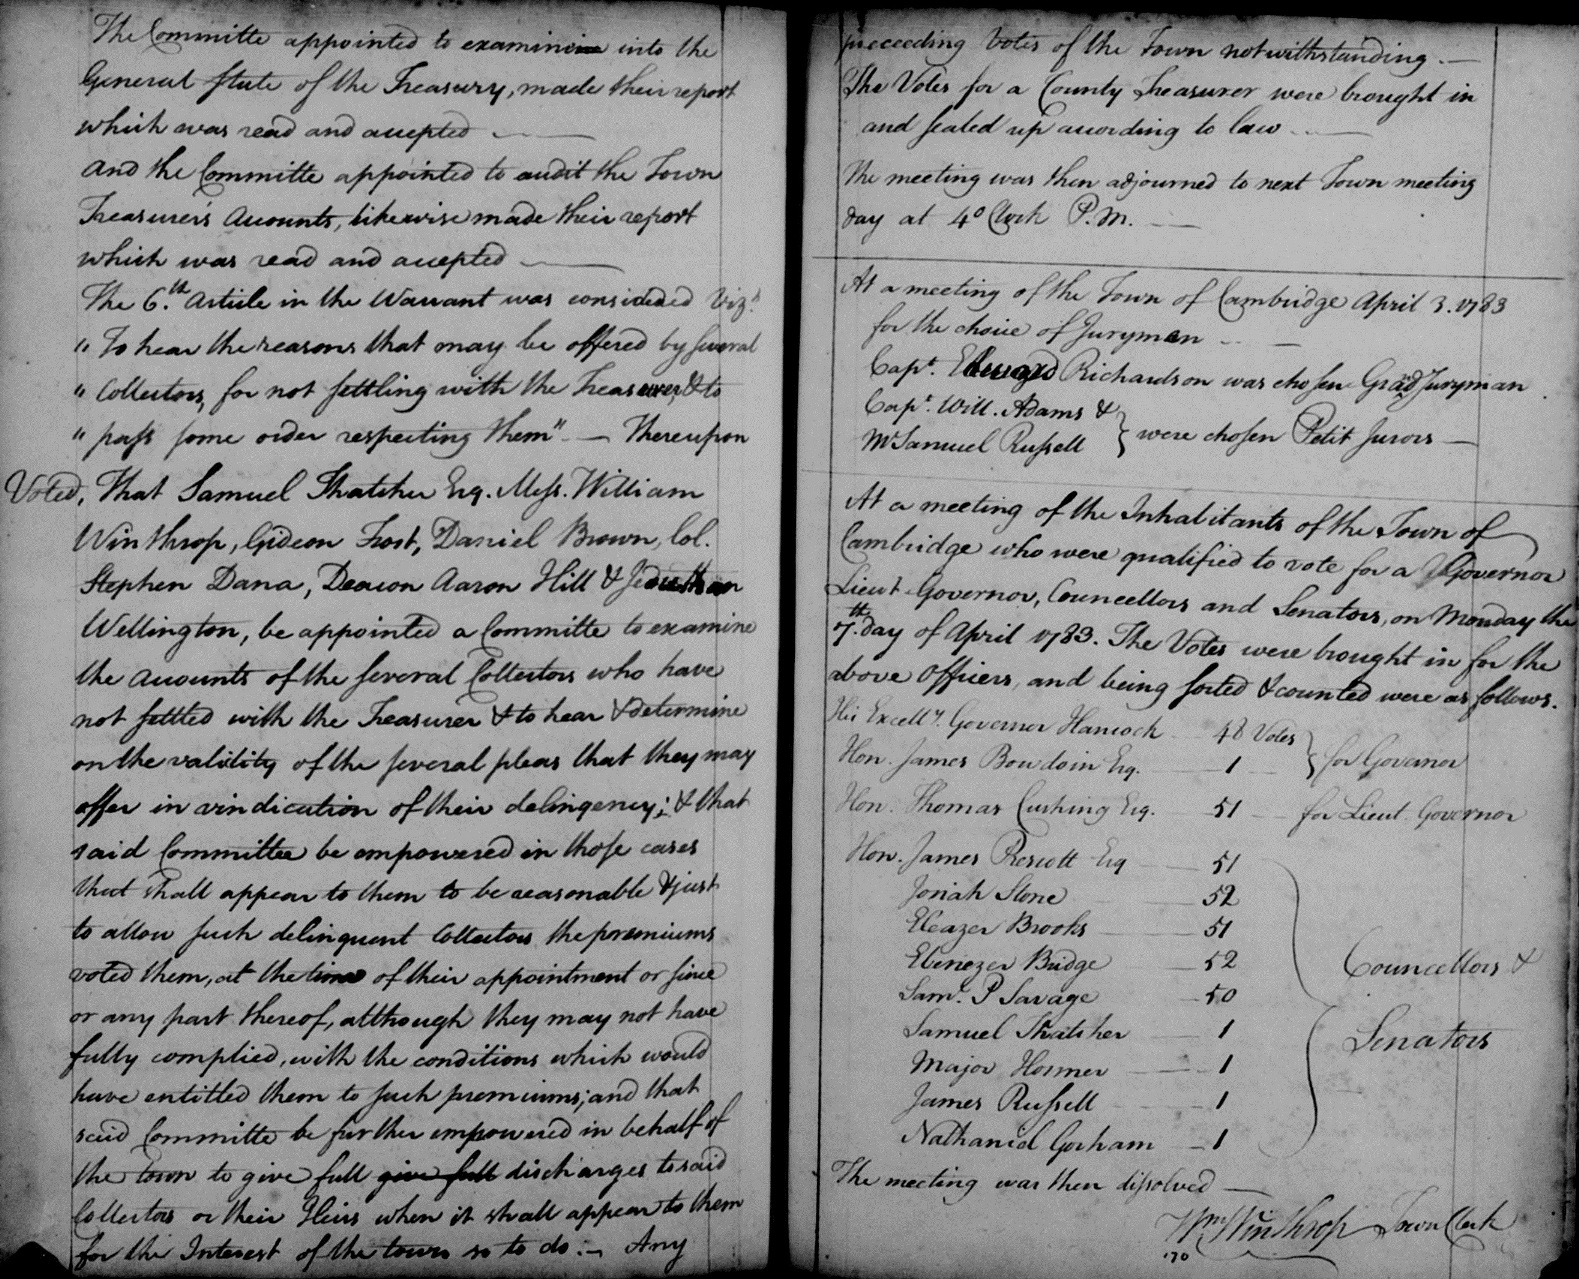 The Committe appointed to examine into the
General State of the Treasury, made their report
which was read and accepted
and the Committe appointed to audit the Town
Treasurer's Accounts, likewise made their report
which was read and accepted
The 6.th Article in the Warrant was considered Viz.t
" To hear the reasons that may be offered by several
" Collectors, for not settling with the Treasurer, & to
" pass some order respecting them" — Thereupon
Voted, That Samuel Thatcher Esq. Mess. William
Winthrop, Gideon Frost, Daniel Brown, Col.
Stephen Dana, Deacon Aaron Hill & Jeduthan
Wellington, be appointed a Committe to examine
the accounts of the several Collectors who have
not settled with the Treasurer & to hear & determine
on the validity of the several pleas that they may
offer in vindication of their delingency; & that
said Committee be empowered in those cases
that shall appear to them to be reasonable & just
to allow such delinquent Collectors the premiums
voted them, at the time of their appointment or since
or any part thereof, although they may not have
fully complied, with the conditions which would
have entitled them to such premiums; and that
said Committe be further empowered in behalf of
the town to give full give full discharges to said
Collectors or their Heirs when it shall appear to them
for the Interest of the town so to do :— Any
preceeding Votes of the Town notwithstanding .—
The Votes for a County Treasurer were brought in
and sealed up according to law
The meeting was then adjourned to next Town meeting
day at 4 o Clock P.M.
At a meeting of the Town of Cambridge April 3. 1783
for the choice of Jurymen
Capt. Edward Richardson was chosen Grand Juryman
Capt. Will. Adams &
Mr Samuel Russell } were chosen Petit Jurors —
At a meeting of the Inhabitants of the Town of
Cambridge who were qualified to vote for a Governor
Lieut. Governor, Councellors and Senators, on Monday the
7.th day of April 1783. The Votes were brought in for the
above Officers, and being sorted & counted were as follows.
His Excelly. Governor Hancock 48 Votes
Hon. James Bowdoin Esq. 1 } for Governor
Hon. Thomas Cushing Esq. 51 for Lieut. Governor
Hon. James Prescott Esq 51
Josiah Stone 52
Eleazer Brooks 51
Ebenezer Bridge 52
Saml. P Savage 50
Samuel Thatcher 1
Major Hosmer 1
James Russell 1
Nathaniel Gorham 1
Councellors &
Senators
The meeting was then dissolved —
Wm Winthrop Town Clerk
170